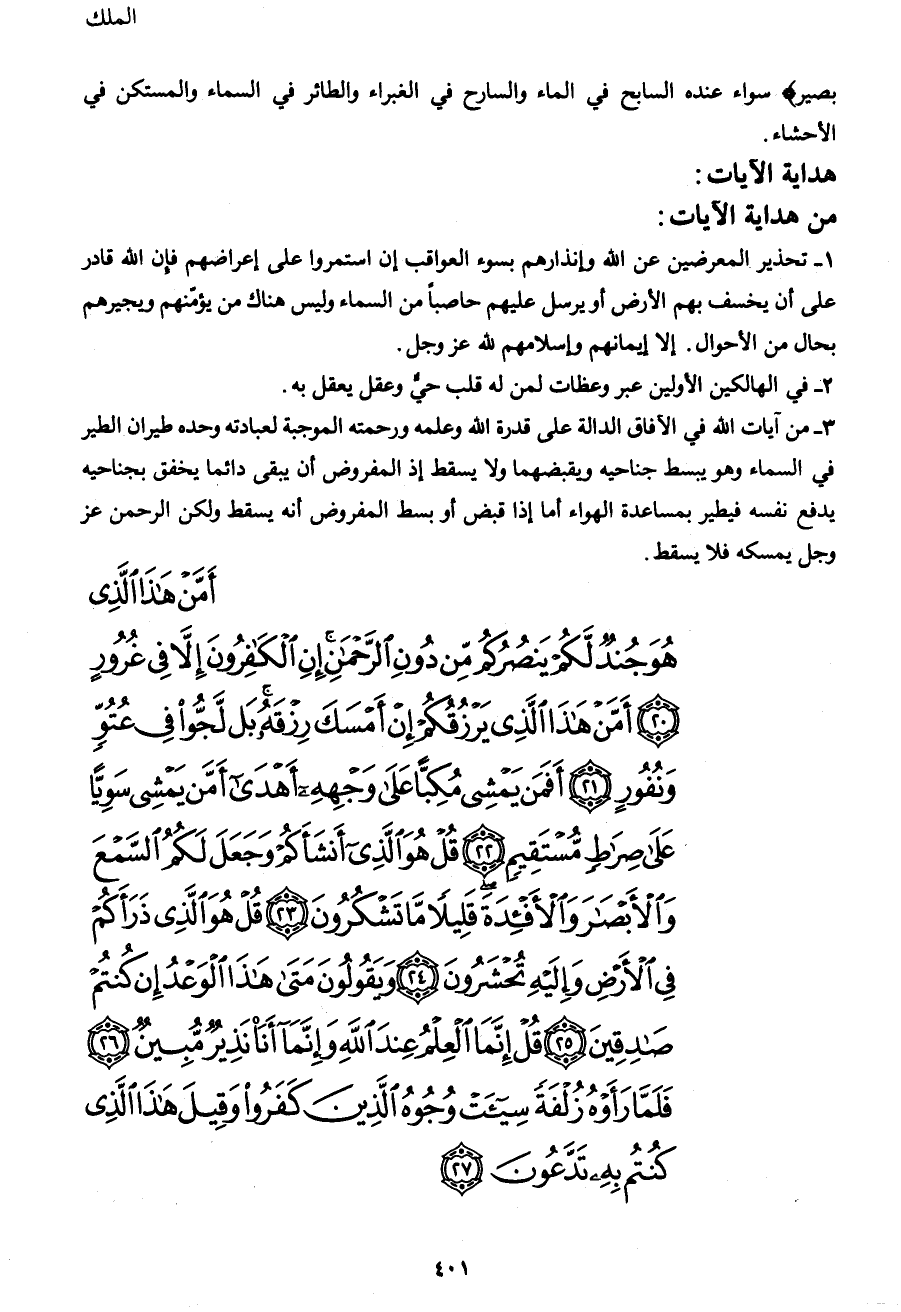 الملك
بصير﴾ سواء عنده السابح في الماء والسارح في الغبراء والطائر في السماء والمستكن في
الأحشاء.
هداية الآيات:
من هداية الآيات:
١ـ تحذير المعرضين عن الله وإنذارهم بسوء العواقب إن استمروا على إعراضهم فإن الله قادر
على أن يخسف بهم الأرض أو يرسل عليهم حاصباً من السماء وليس هناك من يؤمّنهم ويجيرهم
بحال من الأحوال. إلا إيمانهم وإسلامهم لله عز وجل.
٢ـ في الهالكين الأولين عبر وعظات لمن له قلب حيٌّ وعقل يعقل به.
٣ـ من آيات الله في الآفاق الدالة على قدرة الله وعلمه ورحمته الموجبة لعبادته وحده طيران الطير
في السماء وهو يبسط جناحيه ويقبضهما ولا يسقط إذ المفروض أن يبقى دائما يخفق بجناحيه
يدفع نفسه فيطير بمساعدة الهواء أما إذا قبض أو بسط المفروض أنه يسقط ولكن الرحمن عز
وجل يمسكه فلا يسقط.
أَمَّنْ هَٰذَا ٱلَّذِى
هُوَ جُندٌ لَّكُمْ يَنصُرُكُم مِّن دُونِ ٱلرَّحْمَٰنِ ۚ إِنِ ٱلْكَٰفِرُونَ إِلَّا فِى غُرُورٍ
﴿٢٠﴾ أَمَّنْ هَٰذَا ٱلَّذِى يَرْزُقُكُمْ إِنْ أَمْسَكَ رِزْقَهُۥ ۚ بَل لَّجُّوا۟ فِى عُتُوٍّ
وَنُفُورٍ ﴿٢١﴾ أَفَمَن يَمْشِى مُكِبًّا عَلَىٰ وَجْهِهِۦٓ أَهْدَىٰٓ أَمَّن يَمْشِى سَوِيًّا
عَلَىٰ صِرَٰطٍ مُّسْتَقِيمٍ ﴿٢٢﴾ قُلْ هُوَ ٱلَّذِىٓ أَنشَأَكُمْ وَجَعَلَ لَكُمُ ٱلسَّمْعَ
وَٱلْأَبْصَٰرَ وَٱلْأَفْـِٔدَةَ ۖ قَلِيلًا مَّا تَشْكُرُونَ ﴿٢٣﴾ قُلْ هُوَ ٱلَّذِى ذَرَأَكُمْ
فِى ٱلْأَرْضِ وَإِلَيْهِ تُحْشَرُونَ ﴿٢٤﴾ وَيَقُولُونَ مَتَىٰ هَٰذَا ٱلْوَعْدُ إِن كُنتُمْ
صَٰدِقِينَ ﴿٢٥﴾ قُلْ إِنَّمَا ٱلْعِلْمُ عِندَ ٱللَّهِ وَإِنَّمَآ أَنَا۠ نَذِيرٌ مُّبِينٌ ﴿٢٦﴾
فَلَمَّا رَأَوْهُ زُلْفَةً سِيٓـَٔتْ وُجُوهُ ٱلَّذِينَ كَفَرُوا۟ وَقِيلَ هَٰذَا ٱلَّذِى
كُنتُم بِهِۦ تَدَّعُونَ ﴿٢٧﴾
٤٠١